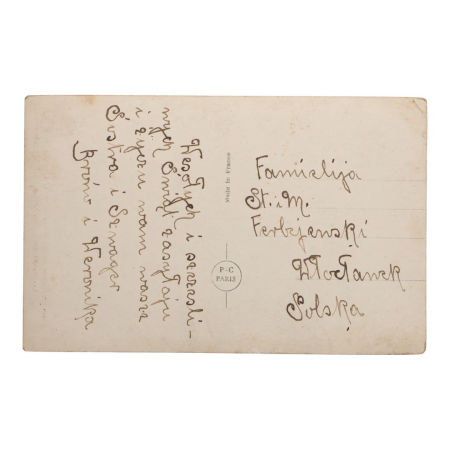 Wesołych i szczesli-
nych Swiąt zasyłaju
i zyczu wam wasze
Sostra i Szwager
Brono i Weronika
Made in France
P-C
PARIS
Familija
St. i M.
Ferbzenski
Włocławek
Polska